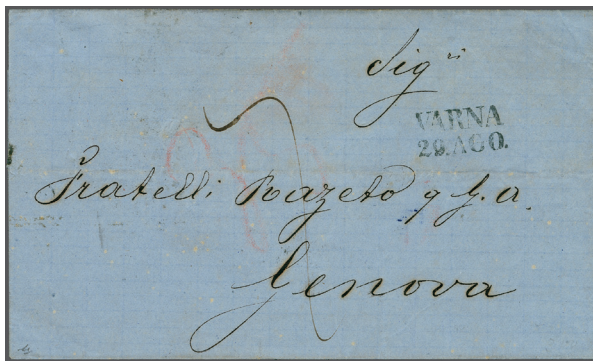 Sig.ri
VARNA
29. AGO.
Fratelli Razeto q G. a
Genova